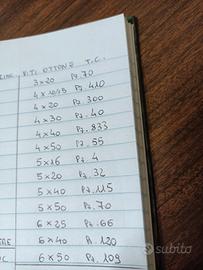 VITI OTTONE T.C.
3x20 Pz. 70
4x Pz. 410
4x20 Pz. 300
4x30 Pz. 40
4x40 Pz. 833
4x50 Pz. 55
5x16 Pz. 4
5x20 Pz. 32
5x40 Pz. 115
5x50 Pz. 70
6x25 Pz. 66
6x40 Pz. 120
6x50 Pz. 109
subito